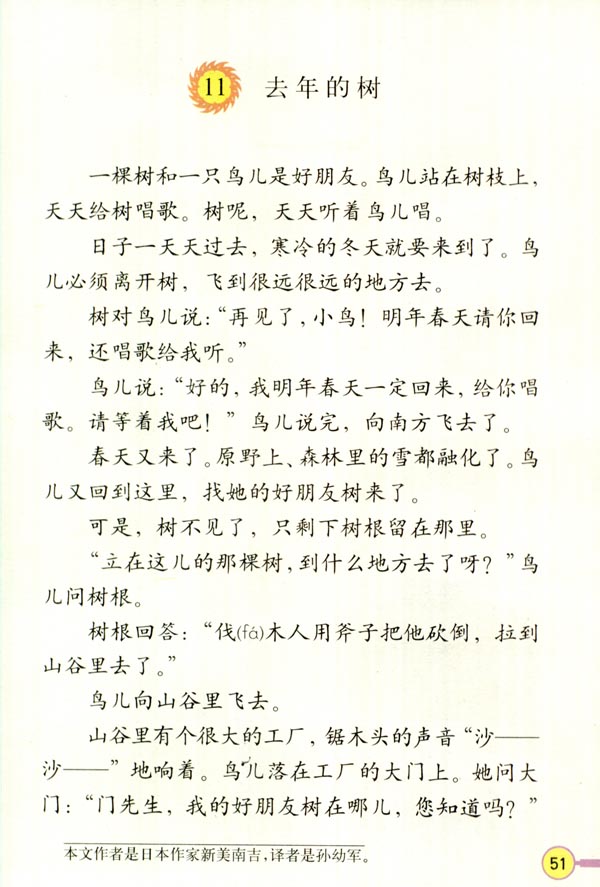 11 去年的树
一棵树和一只鸟儿是好朋友。鸟儿站在树枝上，
天天给树唱歌。树呢，天天听着鸟儿唱。
日子一天天过去，寒冷的冬天就要来到了。鸟
儿必须离开树，飞到很远很远的地方去。
树对鸟儿说：“再见了，小鸟！明年春天请你回
来，还唱歌给我听。”
鸟儿说：“好的，我明年春天一定回来，给你唱
歌。请等着我吧！”鸟儿说完，向南方飞去了。
春天又来了。原野上、森林里的雪都融化了。鸟
儿又回到这里，找她的好朋友树来了。
可是，树不见了，只剩下树根留在那里。
“立在这儿的那棵树，到什么地方去了呀？”鸟
儿问树根。
树根回答：“伐(fá)木人用斧子把他砍倒，拉到
山谷里去了。”
鸟儿向山谷里飞去。
山谷里有个很大的工厂，锯木头的声音“沙——
沙——”地响着。鸟儿落在工厂的大门上。她问大
门：“门先生，我的好朋友树在哪儿，您知道吗？”
本文作者是日本作家新美南吉，译者是孙幼军。
51